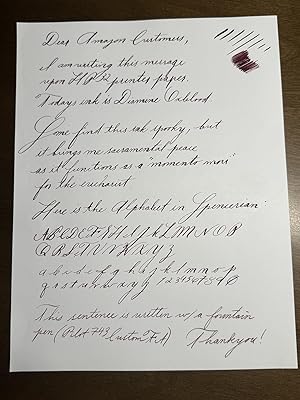 Dear Amazon Customers,
I am writing this message
upon HP 32 printer paper.
Todays ink is Diamine Oxblood.
Some find this ink spooky, but
it brings me sacramental peace
as it functions as a "momento mori"
for the eucharist
Here is the Alphabet in Spencerian:
A B C D E F G H I J K L M N O P
Q R S T U V W X Y Z
a b c d e f g h i j k l m n o p
q r s t u v w x y z 1 2 3 4 5 6 7 8 9 0
This sentence is written w/ a fountain
pen (Pilot 743 Custom FA) Thankyou!